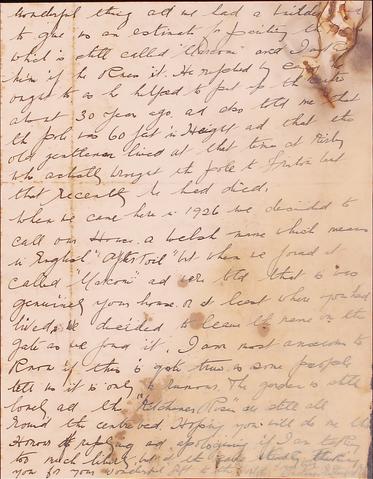 wonderful thing and we had a builder
to give us an estimate for painting the
which is still called "Marconi" and I asked
him if he knew it. He replied by
ought to as he helped to put up the
about 30 years ago, and also told me that
the pole was 60 feet in Height and that the
old gentleman lived at that time at
who actually brought the pole to but
that recently he had died.
When we came here in 1926 we decided to
call our House a welsh name which means
in English "After Toil" but when we found it
called "Marconi" and were told that it was
genuinely your house or at least where you had
lived, we decided to leave the name on the
gate as we found it. I am most anxious to
Know if this is quite true as some people
tell us it is only a rumour. The garden is still
lovely and the Roses are still all
round the centre bed. Hoping you will do me the
Honour of replying and apologising if I am taking
too much liberty but
you for your wonderful gift to the